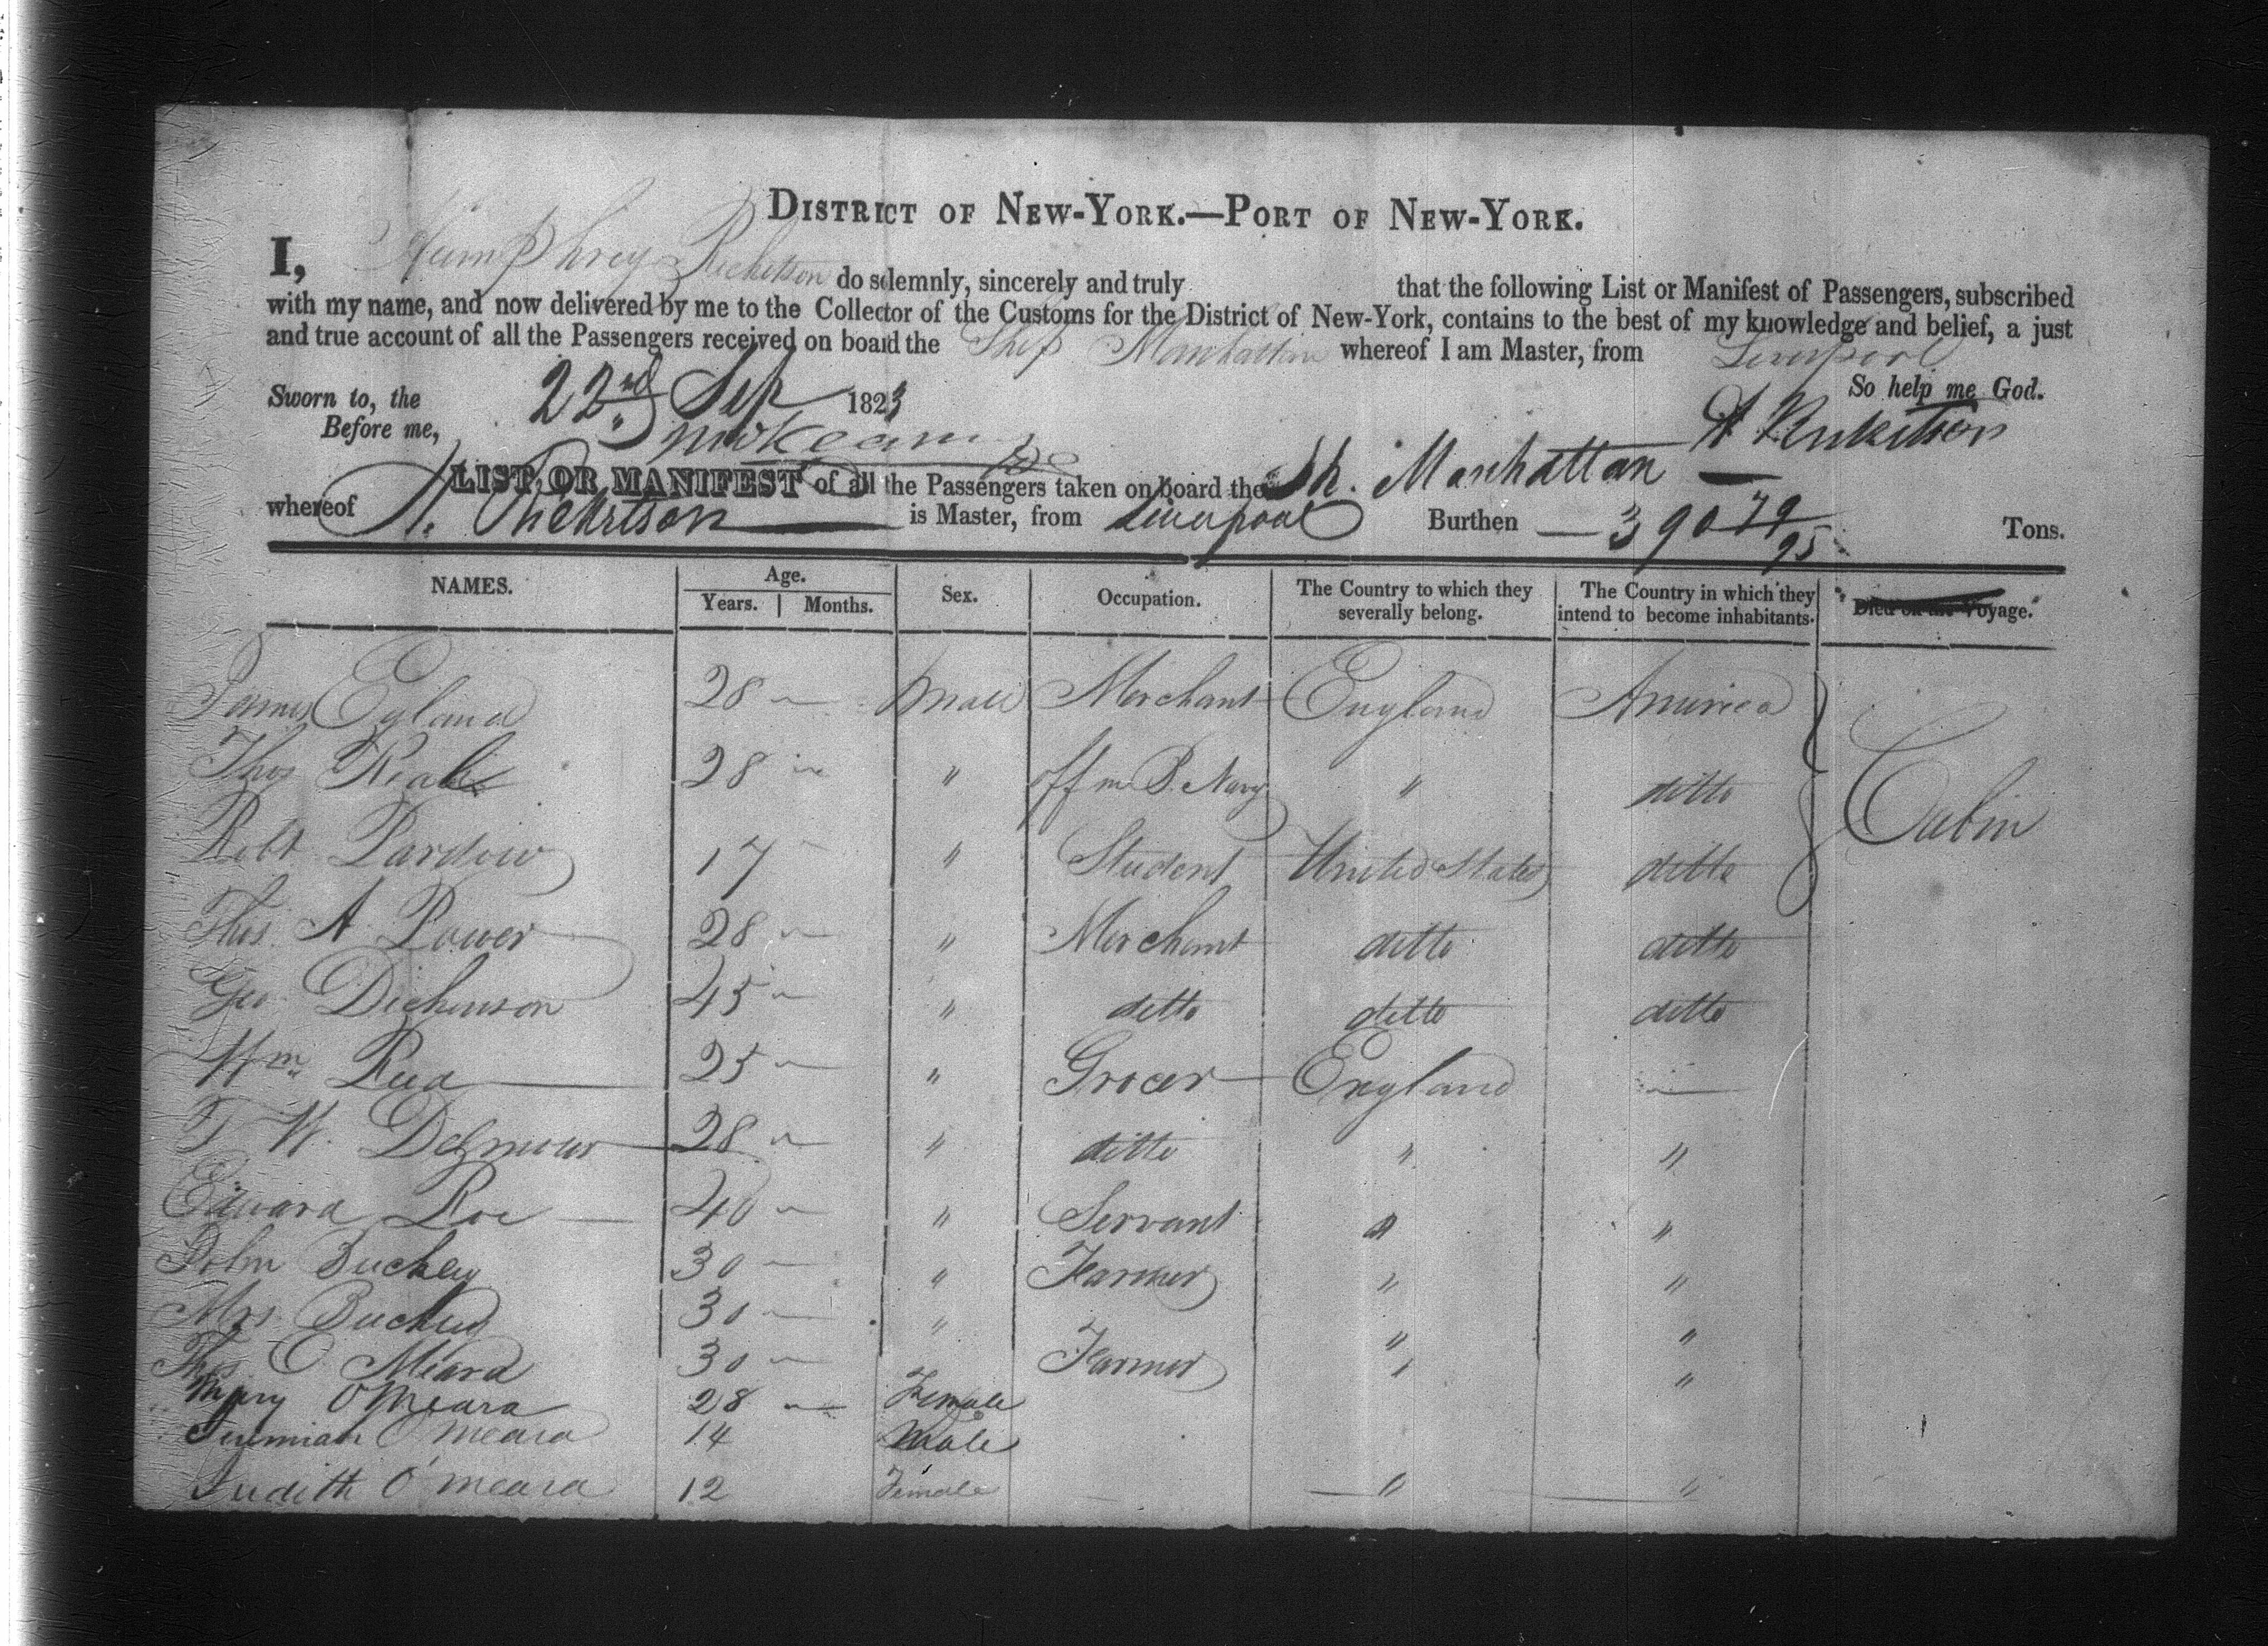 DISTRICT OF NEW-YORK.—PORT OF NEW-YORK.
I, Humphrey Ricketson do solemnly, sincerely and truly that the following List or Manifest of Passengers, subscribed
with my name, and now delivered by me to the Collector of the Customs for the District of New-York, contains to the best of my knowledge and belief, a just
and true account of all the Passengers received on board the Ship Manhattan whereof I am Master, from Liverpool
So help me God.
Sworn to, the 22nd Sep 1823
H Ricketson
Before me,
LIST, OR MANIFEST of all the Passengers taken on board the Sh. Manhattan
whereof H. Ricketson is Master, from Liverpool Burthen 390 79/95 Tons.
NAMES. Age. Years. Months. Sex. Occupation. The Country to which they severally belong. The Country in which they intend to become inhabitants. Died on the Voyage.
James Egland 28 Male Merchant England America
Thos 28 " off in R. Navy " ditto
Cabin
Robt Pardow 17 " Student United States ditto
Thos. A Power 28 " Merchant ditto ditto
Geo. Dickenson 45 " ditto ditto ditto
Wm Reed 25 " Grocer England —
T W. 28 " ditto " "
Edward Roe 40 " Servant " "
John Buckley 30 " Farmer " "
Mrs. Buckley 30 " " "
Thos O Meara 30 Farmer " "
Mary O'Meara 28 Female
Jeremiah O'Meara 14 Male
Judith O'Meara 12 Female " "